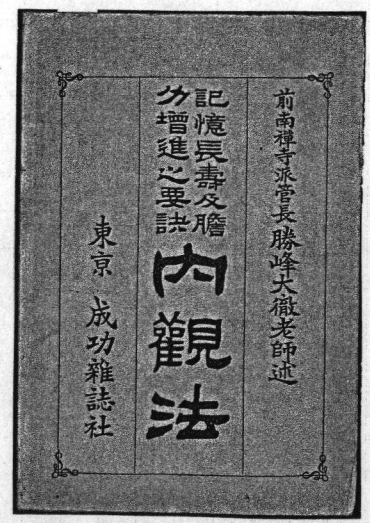 前南禪寺派管長勝峰大徹老師述
記憶長壽及膽
力增進之要訣
內觀法
東京 成功雜誌社